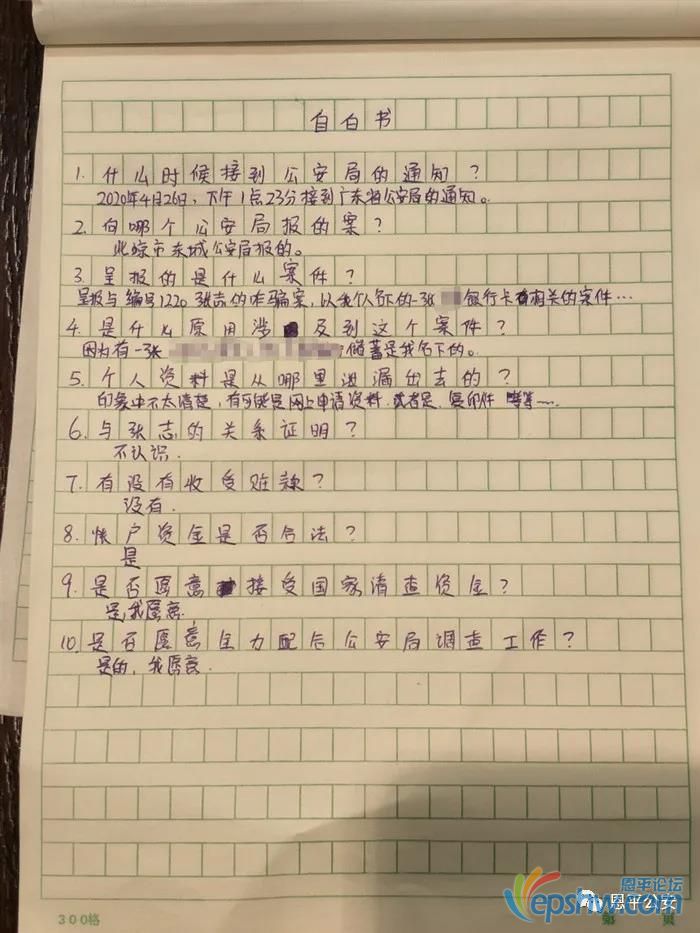 自白书
1. 什么时候接到公安局的通知?
2020年4月26日,下午1点23分接到广东省公安局的通知。
2. 向哪个公安局报的案?
北京市东城公安局报的。
3. 呈报的是什么案件?
呈报与编号1220张志的诈骗案,以我个人名下的一张 银行卡有相关的案件…
4. 是什么原用涉及到这个案件?
因为有一张 储蓄是我名下的。
5. 个人资料是从哪里泄漏出去的?
印象中不太清楚,有可能是网上申请资料.或者是.复印件 等等…..
6. 与张志的关系证明?
不认识.
7. 有没有收受赃款?
没有.
8. 帐户资金是否合法?
是
9. 是否愿意接受国家清查资金?
是,我愿意.
10. 是否愿意全力配合公安局调查工作?
是的,我愿意.
恩平论坛
epshw.com
恩平公安
300格
第 页